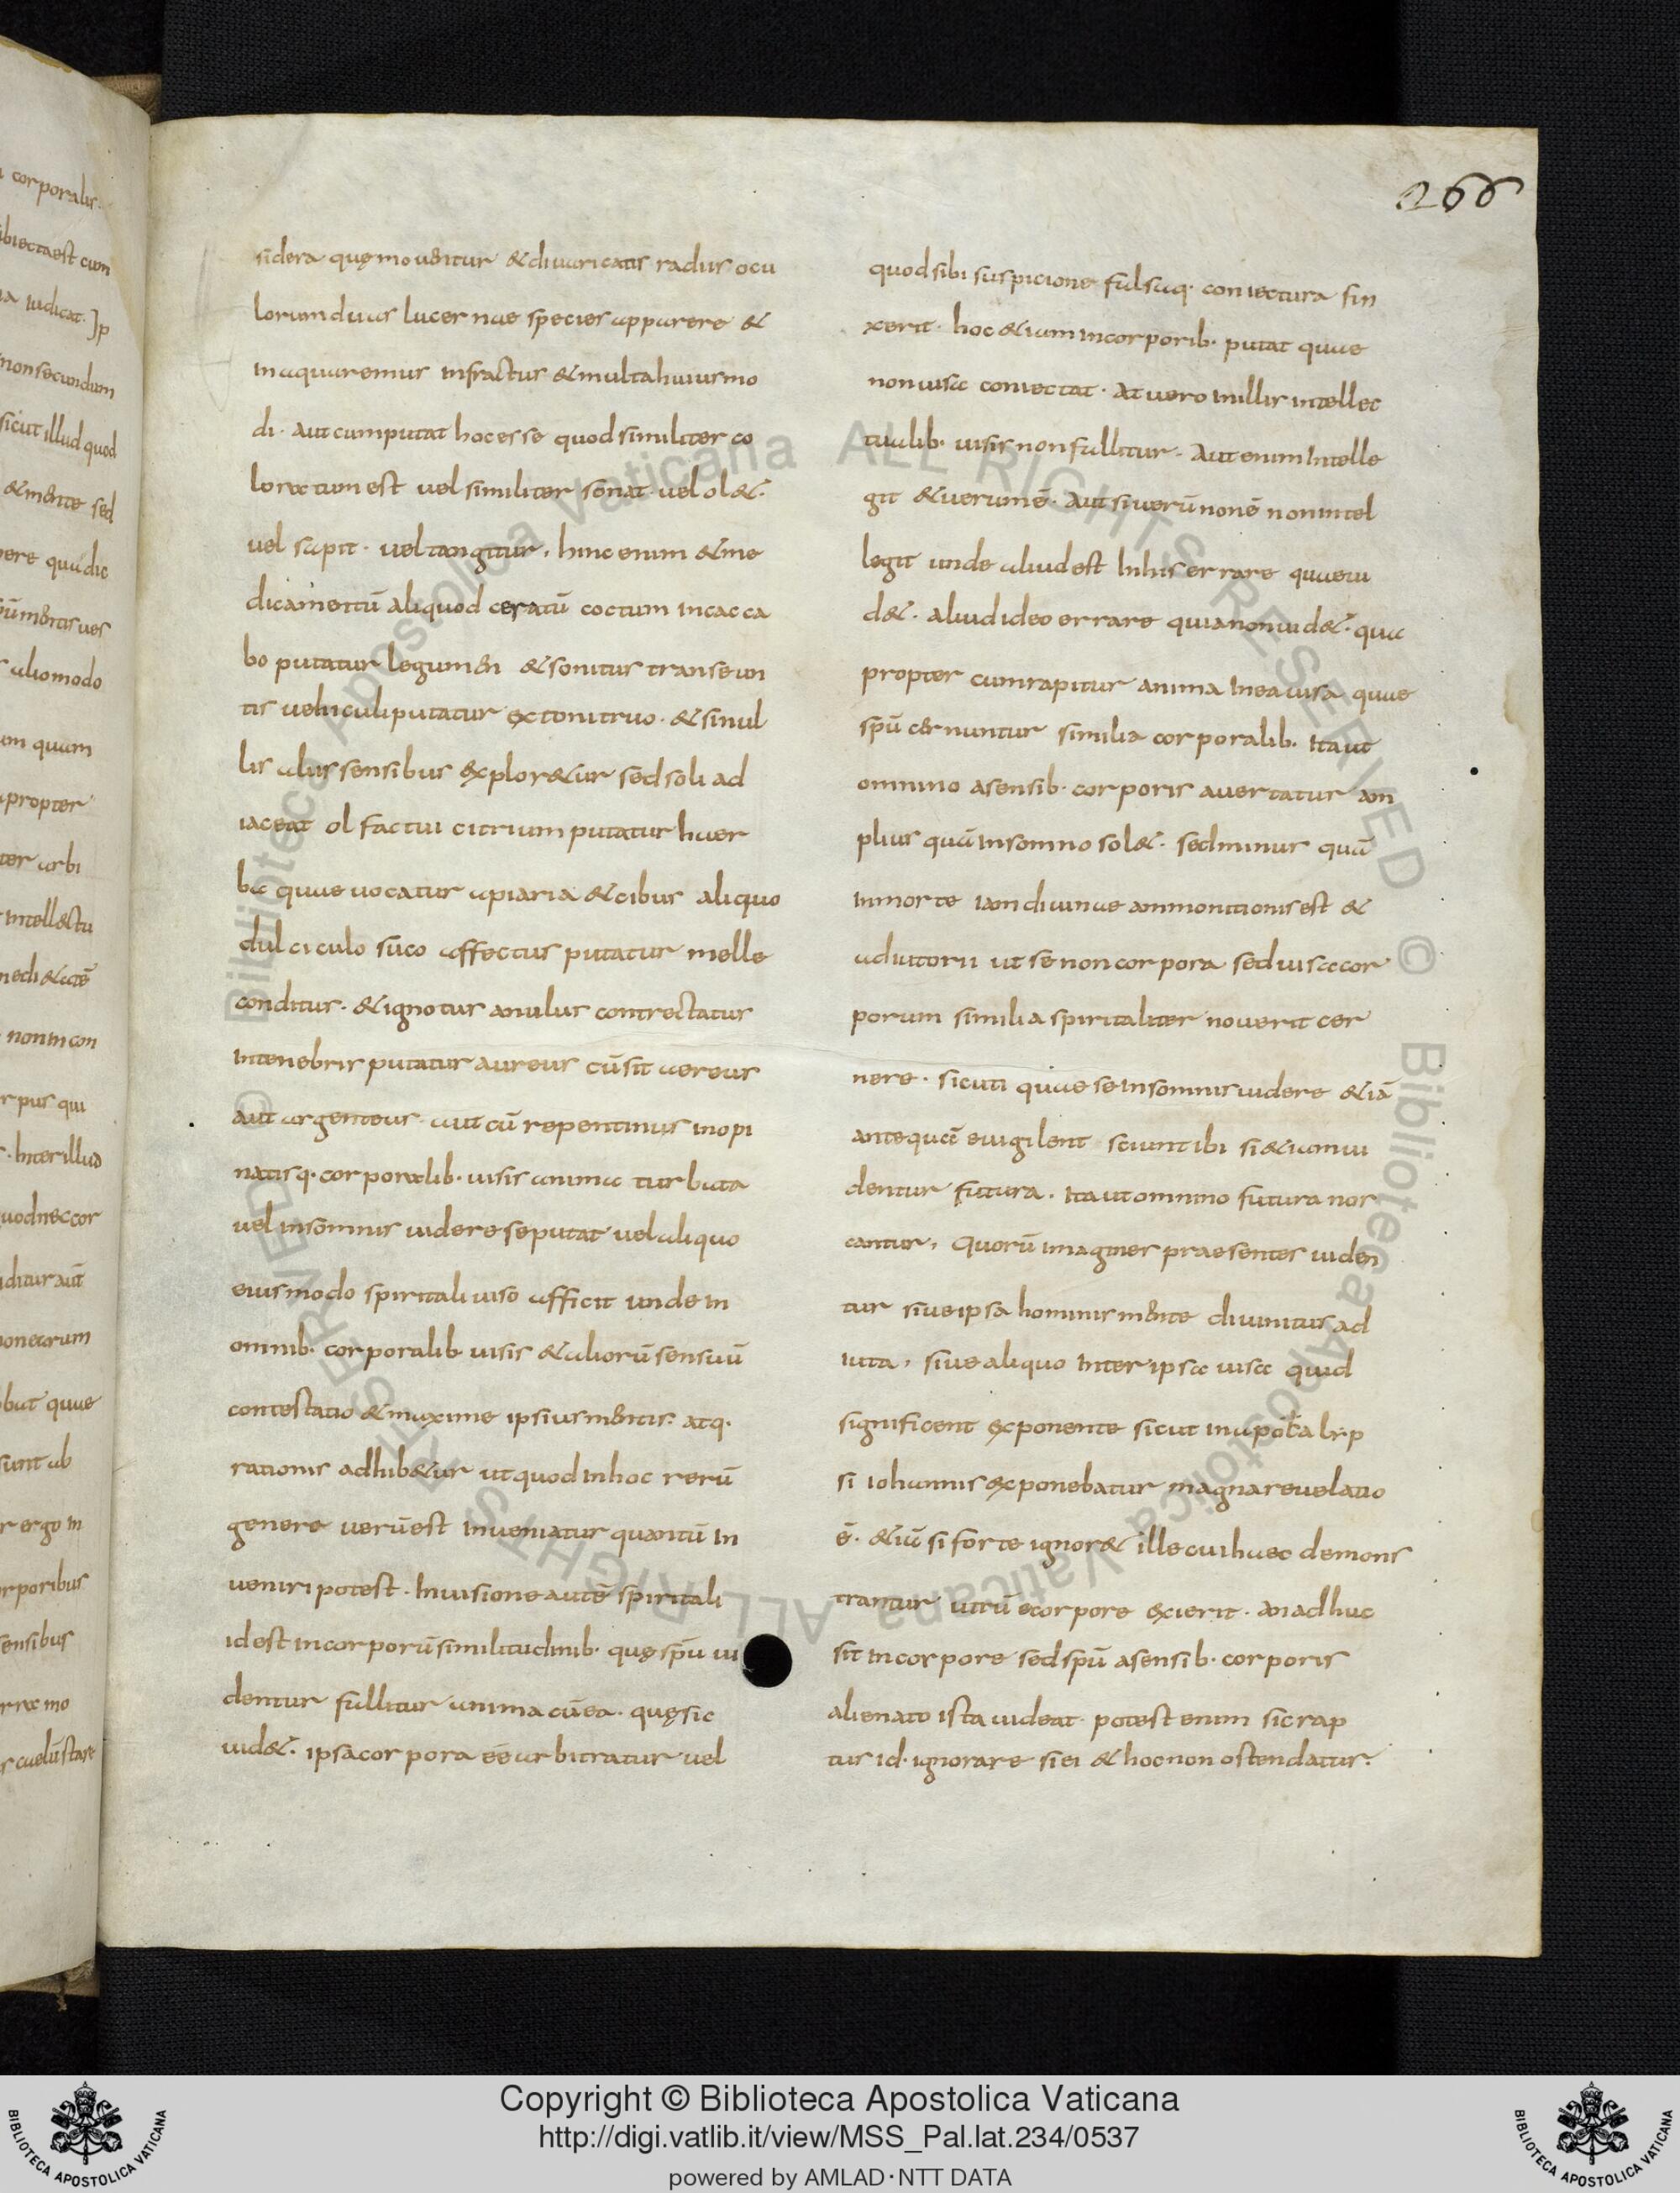 266
sidera quę mouentur & diuaricatis radiis ocu
lorum duas lucernae species apparere &
in aqua remus infractus & multa huiusmo
di · aut cum putat hoc esse quod similiter co
loratum est uel similiter sonat · uel ol& ·
uel sapit · uel tangitur · hinc enim & me
dicamentū aliquod ceratū coctum in cacca
bo putatur legumen & sonitus transeun
tis uehiculi putatur ex tonitruo · & si nul
lis aliis sensibus explor&ur sed soli ad
iaceat olfactui citrium putatur huer
ba quae uocatur apiaria & cibus aliquo
dulciculo suco affectus putatur melle
conditus · & ignotus anulus contrectatus
in tenebris putatur aureus cū sit aereus
aut argenteus · aut cū repentinis inopi
natisq· corporalib· uisis anima turbata
uel in somnis uidere se putat uel aliquo
eiusmodo spiritali uiso afficit unde in
omnib· corporalib· uisis & aliorū sensuū
contestatio & maxime ipsius mentis · atq·
rationis adhib&ur ut quod in hoc rerū
genere uerū est inueniatur quantū in
ueniri potest · In uisione autē spiritali
id est in corporū similitudinib· quę spū ui
dentur fallitur anima cū ea · quę sic
uid& · ipsa corpora eē arbitratur uel
quod sibi suspicione falsaq· coniectura fin
xerit · hoc & iam in corporib· putat quae
non uisa coniectat · At uero in illis intellec
tualib· uisis non fallitur · Aut enim intelle
git & uerum ē · Aut si uerū non ē non intel
legit unde aliud est in his errare quae ui
d& · aliud ideo errare quia non uid& · qua
propter cum rapitur anima in ea uisa quae
spū cernuntur similia corporalib· ita ut
omnino a sensib· corporis auertatur am
plius quā in somno sol& · sed minus quā
in morte iam diuinae ammonitionis est &
adiutorii ut se non corpora sed uisa cor
porum similia spiritaliter nouerit cer
nere · sicuti quae se in somnis uidere & iā
antequā euigilent sciunt ibi si & iam ui
dentur futura · ita ut omnino futura nos
cantur · quorū imagines praesentes uiden
tur siue ipsa hominis mente diuinitus ad
iuta · siue aliquo inter ipsa uisa quid
significent exponente sicut in
si iohannis exponebatur magna reuelatio
ē · & iā si forte ignor& ille cui haec demons
trantur utrū e corpore exierit · an adhuc
sit in corpore sed spū a sensib· corporis
alienato ista uideat · potest enim sic rap
tus id · ignorare si ei & hoc non ostendatur ·
Copyright © Biblioteca Apostolica Vaticana
http://digi.vatlib.it/view/MSS_Pal.lat.234/0537
powered by AMLAD·NTT DATA
BIBLIOTECA APOSTOLICA VATICANA
BIBLIOTECA APOSTOLICA VATICANA
© Biblioteca Apostolica Vaticana ALL RIGHTS RESERVED © Biblioteca Apostolica Vaticana ALL RIGHTS RESERVED